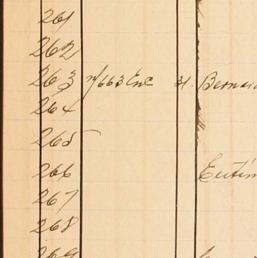 261
262
263 n/663 Enc 31 Berna
264
265
266 Eutim
267
268
269